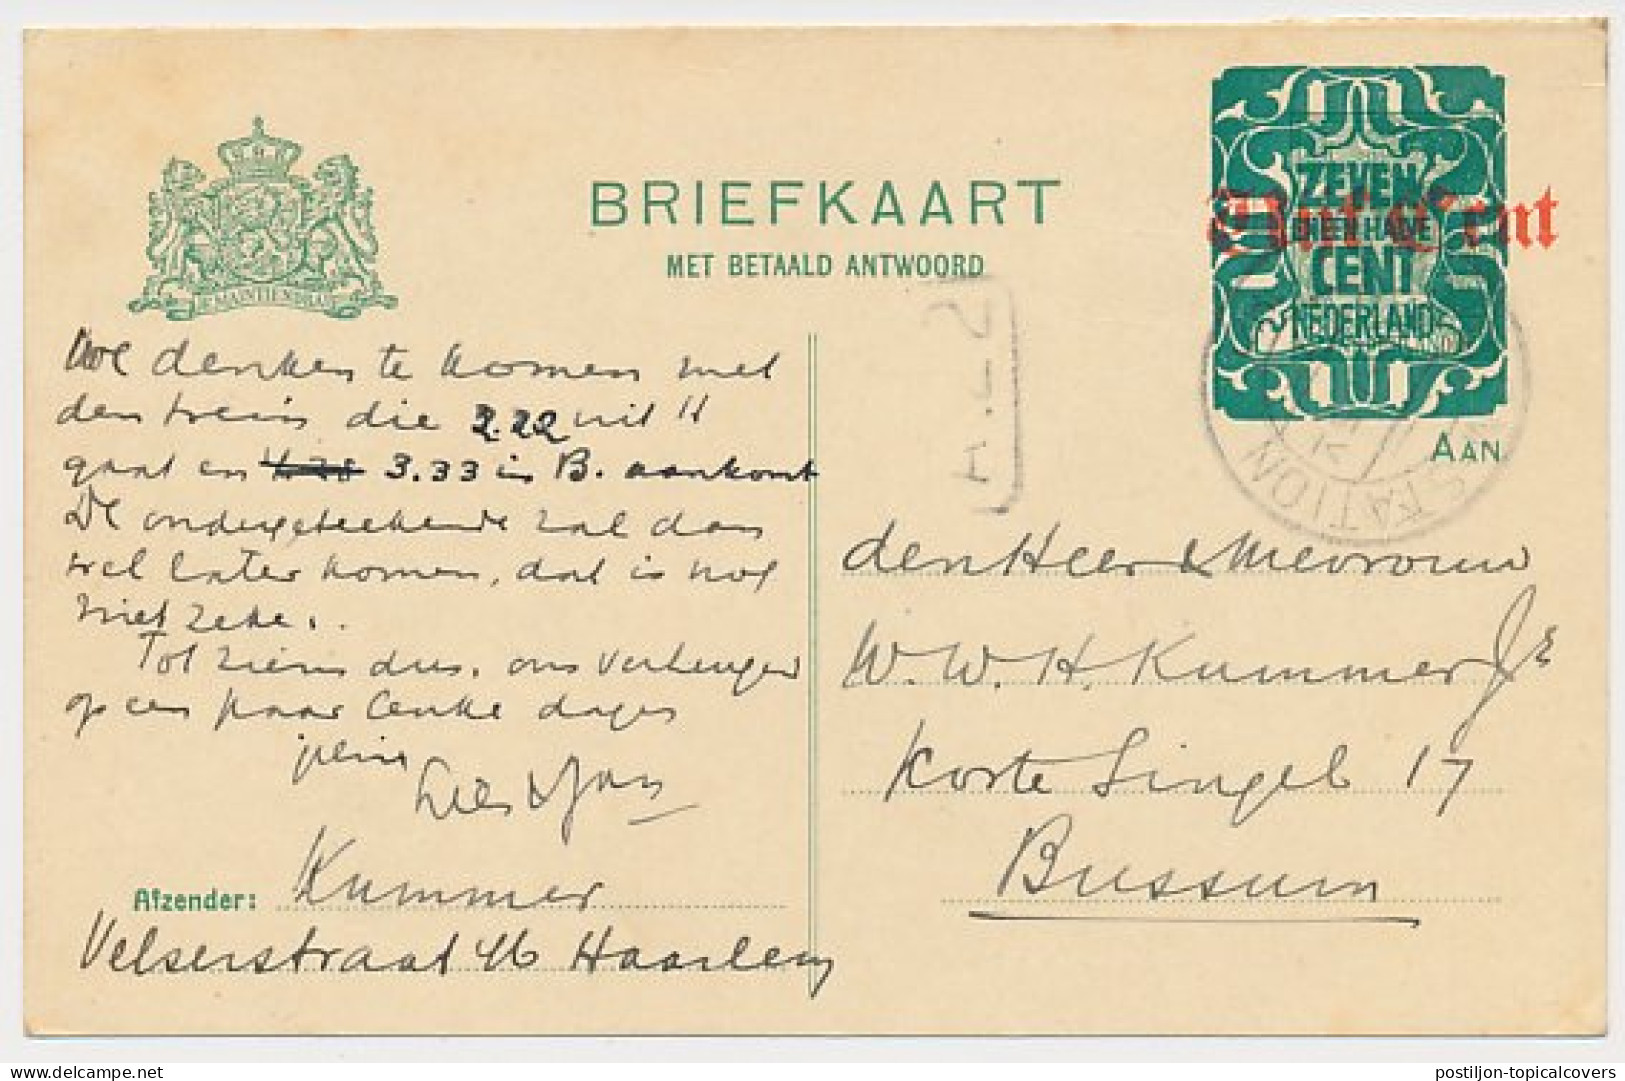 BRIEFKAART
MET BETAALD ANTWOORD
ZEVEN
EN EEN HALVE
CENT
NEDERLAND
Vijf Cent
JE MAINTIENDRAI
AAN
STATION
A.-2
We denken te komen met
den trein die 2.22 uit H
gaat en 3.33 in B. aankomt
De ondergeteekende zal dan
wel later komen, dat is nog
niet zeker.
Tot ziens dus, ons verheugend
op een paar leuke dagen
Lies & Jan
Afzender: Kummer
Velserstraat 46 Haarlem
den Heer & Mevrouw
W. W. H. Kummer Jr
Korte Singel 17
Bussum
postiljon-topicalcovers